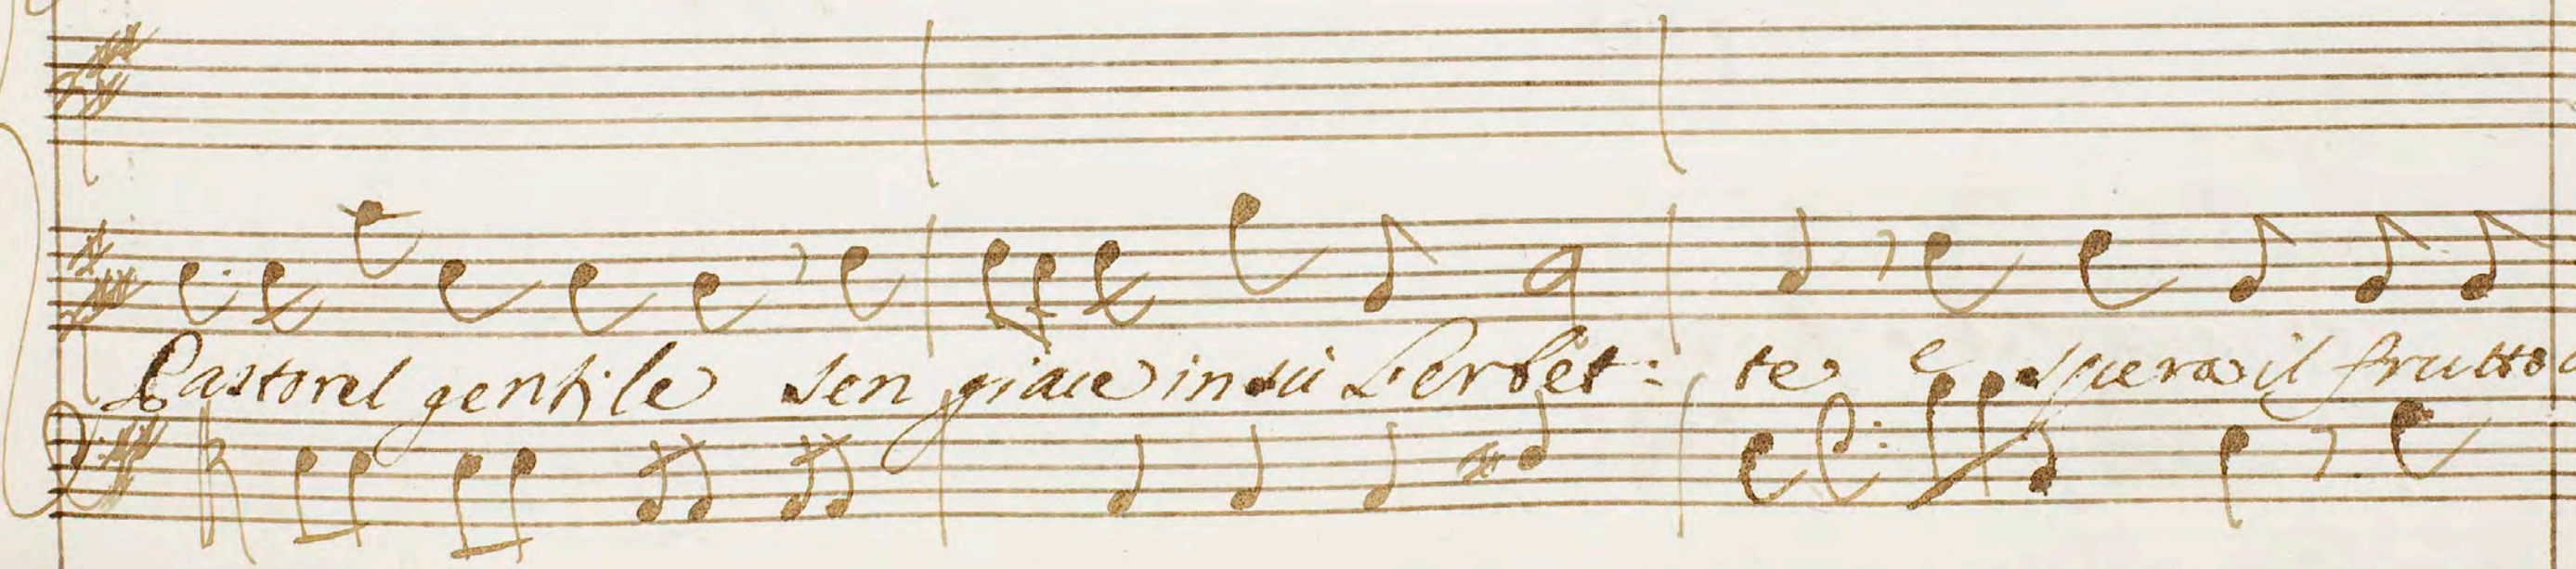 Pastorel gentile sen giace in sù L'erbet: te e spera il frutto